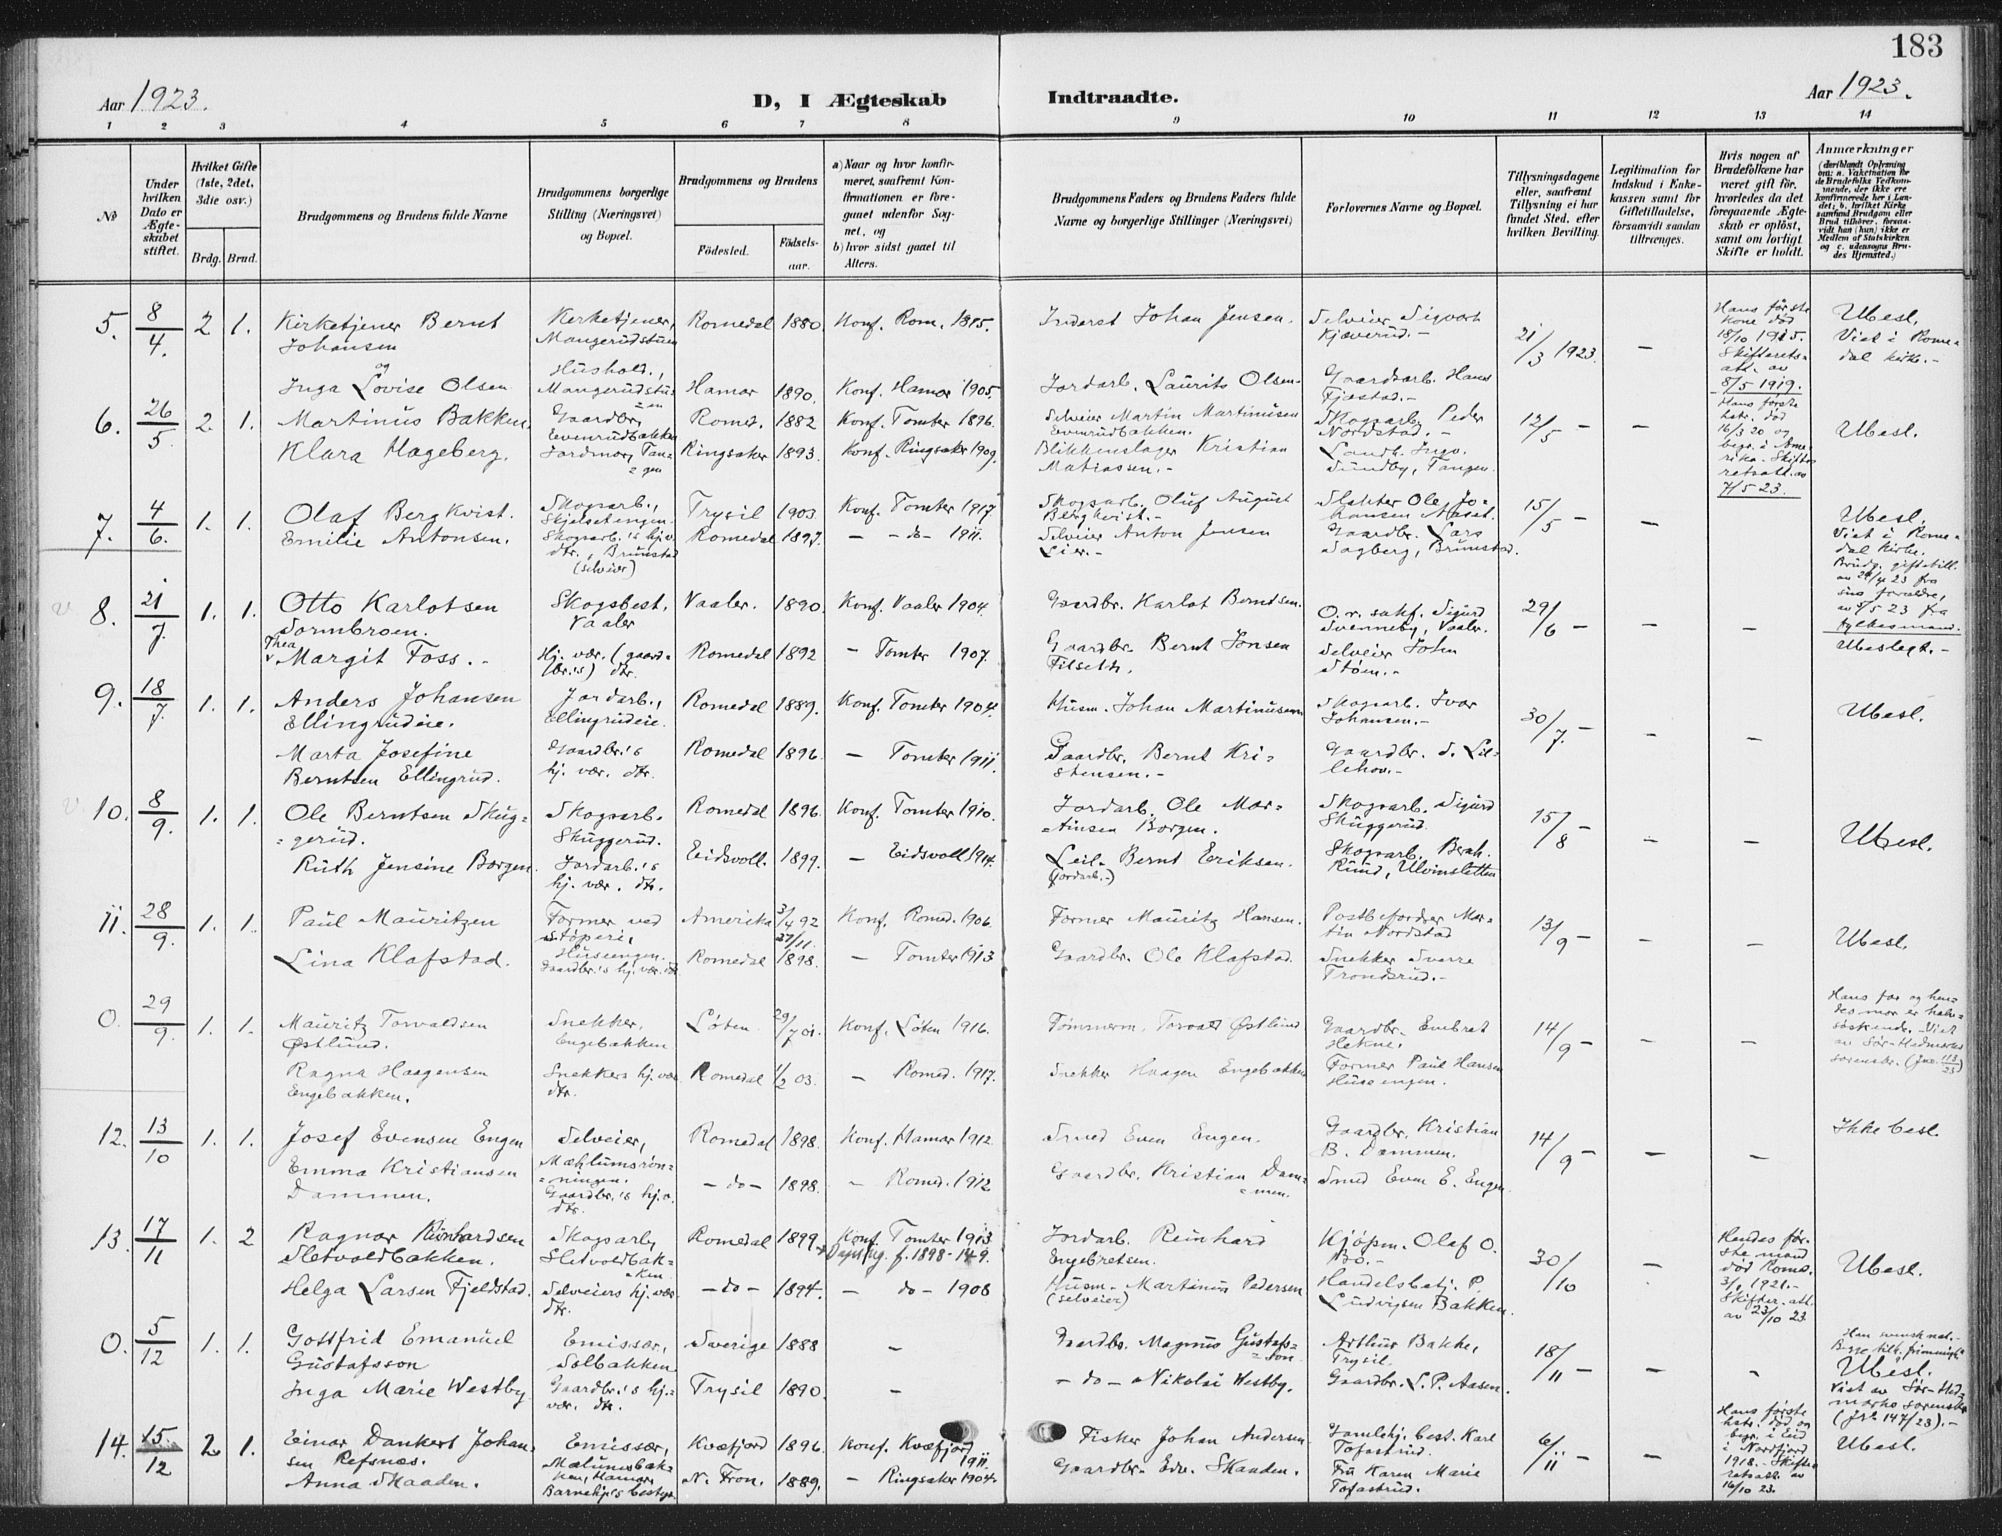 183
Aar 1923.
D, I Ægteskab Indtraadte.
Aar 1923.
1 2 3 4 5 6 7 8 9 10 11 12 13 14
No
Under hvilken Dato er Ægteskabet stiftet.
Hvilket Gifte (1ste, 2det, 3die osv.)
Brdg. Brud.
Brudgommens og Brudens fulde Navne
Brudgommens borgerlige Stilling (Næringsvei) og Bopæl.
Brudgommens og Brudens
Födested. Födselsaar.
a) Naar og hvor konfirmeret, saafremt Konfirmationen er foregaaet udenfor Sognet, og
b) hvor sidst gaaet til Alters.
Brudgommens Faders og Brudens Faders fulde Navne og borgerlige Stillinger (Næringsvei)
Forlovernes Navne og Bopæl.
Tillysningsdagene eller, saafremt Tillysning ei har fundet Sted, efter hvilken Bevilling.
Legitimation for Indskud i Enkekassen samt for Giftetilladelse, forsaavidt saadan tiltrænges.
Hvis nogen af Brudefolkene har været gift för, hvorledes da det foregaaende Ægteskab er oplöst, samt om lovligt Skifte er holdt.
Anmærkninger
5. 8/4. 2 1. Kirketjener Bernt Johansen Kirketjener, Mangerudstuen Romedal 1880. Konf. Rom. 1895. Inderst Johan Jensen. Selveier Sigvart Kjæverud.- 21/3 1923. - Hans første kone død 18/10 1915. Skifterets- att. av 8/5 1919. Ubesl. Viet i Romedal kirke.-
og
Inga Lovise Olsen Hushold., Mangerudstuen Hamar 1890. Konf. Hamar 1905. Jordarb. Laurits Olsen- Gaardsarb. Hans Fjæstad.-
6. 26/5. 2. 1. Martinus Bakken. Gaardbr, Evenrudbakken Romed. 1882 Konf. Tomter 1896. Selveier Martin Martinusen Evenrudbakken. Skogsarb. Peder Nordstad.- 12/5 - - Hans første hstr. død 16/3 20 og begr. i Amerika. Skifteretsatt. av 7/5 23. Ubesl.
Klara Hageberg. Jordmor, Tangen Ringsaker 1893. Konf. Ringsaker 1909. Blikkenslager Kristian Matiassen.- Landh. Ingv. Sundby, Tangen.
7. 4/6. 1. 1. Olaf Bergkvist. Skogsarb., Trysil 1903. Konf. Tomter 1917. Skogsarb. Oluf August Bergkvist.- Slakter Ole Johansen Aaset. 15/5 - - Ubesl. Viet i Romedal kirke. Brudg. giftetill.
Emilie Antonsen. Skogsarb.'s hj.v. dtr., Brunstad (selveier) Romedal 1897. - -do- 1911. Selveier Anton Jensen Lier.- Gaardbr. Lars Sagberg, Brunstad.
8. 21/7. 1. 1. Otto Karlotsen Sormbroen. Skogsbest. Vaaler Vaaler. 1890. Konf. Vaaler 1904. Gaardbr. Karlot Berndsen. O.r. sakf. Sigurd Svenneby, Vaaler. 29/6 - - Ubeslegt.-
Thea Margit Foss.- Hj. vær. (gaardbr.'s) dtr. Romedal 1892 - Tomter 1907. Gaardbr. Bernt Jonsen Filseth. Selveier John Støen.-
9. 18/7. 1. 1. Anders Johansen Ellingrudeie. Jordarb., Ellingrudeie. Romedal 1889. Konf. Tomter 1904. Husm. Johan Martinusen Skogsarb. Ivar Johansen.- 30/7. - - - Ubesl.
Marta Josefine Berntsen Ellingrud. Gaardbr.'s hj. vær. dtr. Romedal 1896. - Tomter 1911. Gaardbr. Bernt Kristensen.- Gaardbr. S. Lillehov.-
10. 8/9. 1. 1. Ole Berntsen Skuggerud. Skogsarb. Skuggerud. Romedal 1896. Konf. Tomter 1910. Jordarb. Ole Martinsen Borgen. Skogsarb. Sigurd Skuggerud. 15/8 - - - Ubesl.
Ruth Jensine Borgen. Jordarb.'s hj. vær. dtr. Eidsvoll. 1899. - Eidsvoll 1914. Leil. Bernt Eriksen. (jordarb.-) Skogsarb. Bernh. Rund, Ulvinsletten
11. 28/9. 1. 1. Paul Mauritzen Former ved støperi, Husengen. Amerika 3/4 92 Konf. Romed. 1906. Former Mauritz Hansen. Postbefordrer Martin Nordstad 13/9 - - - Ubesl.
Lina Klafstad. Gaardbr.'s hj. vær. dtr. Romedal 27/11. 1898. - Tomter 1913 Gaardbr. Ole Klafstad. Snekker Sverre Trondsrud.-
0. 29/9. 1. 1. Mauritz Torvaldsen Østlund. Snekker, Engebakken Løten. 29/7 01. Konf. Løten 1916. Tømmerm. Torvald Østlund Gaardbr. Embret Hekne. 14/9 - - - Hans far og hendes mor er halvsøskende. Viet av Sør-Hedmarks sorenskr. (Jno. 113/23)
Ragna Haagensen Engebakken. Snekkers hj. vær. dtr. Romedal 1/2 03. - Romed. 1917. Snekker Haagen Engebakken Former Paul Hansen Husengen.
12. 13/10 1. 1. Josef Evensen Engen Selveier, Mæhlumsrønningen. Romedal 1898. Konf. Hamar 1912. Smed Even Engen. Gaardbr. Kristian B. Dammen. 14/9 - - - Ikke besl.
Emma Kristiansen Dammen. Gaardbr.'s hj.v. dtr. -do- 1898. - Romed. 1912 Gaardbr. Kristian Dammen. Smed Even E. Engen
13. 17/11 1. 2 Ragnar Reinhardsen Sletvoldbakken. Skogsarb, Sletvoldbakken Romedal 1899. Konf. Tomter 1913 Jordarb. Reinhard Engebretsen. Kjøpm. Olaf O. Bo.- 30/10 - Hendes første mand død Romd. 1921.- Skifter. att. av 23/10 23. Ubesl.
Helga Larsen Fjeldstad. Selveiers hj. vær. dtr. -do- 1894. - do- 1908 Husm- Martinus Pedersen (selveier) Handelsbetj. P. Ludvigsen Bakken.
0. 5/12 1. 1. Gottfrid Emanuel Gustafsson Emissær, Solbakken Sverige 1888 - Gaardbr. Magnus Gustafsson Arthur Bakke, Trysil. 18/11 - - - Han svensk nat.- Ubesl. Viet av Sør-Hedmarks sorenskr (Jr. 147/23).-
Inga Marie Westby. Gaardbr.'s hj. vær. dtr. Trysil 1890. - -do- Nikolai Westby. Gaardbr. L.P. Aasen.
14. 15/12 2 1. Einar Dankert Johansen Refsnæs. Emissær, Mælumsbakken, Hamar Kvæfjord 1896. Konf. Kvæfjord 1911. Fisker Johan Andersen Gamlehj. best. Karl Tofastrud. 6/11 - - Hans første hstr. død og begr. i Eid i Nordfjord 1918.- Skifteretsatt. av 16/10 23. Ubesl.
Anna Skaaden. Barnehj's bestyr. N. Fron. 1889. - Ringsaker 1904. Gaardbr. Edv. Skaaden. Fru Karen Marie Tofastrud.